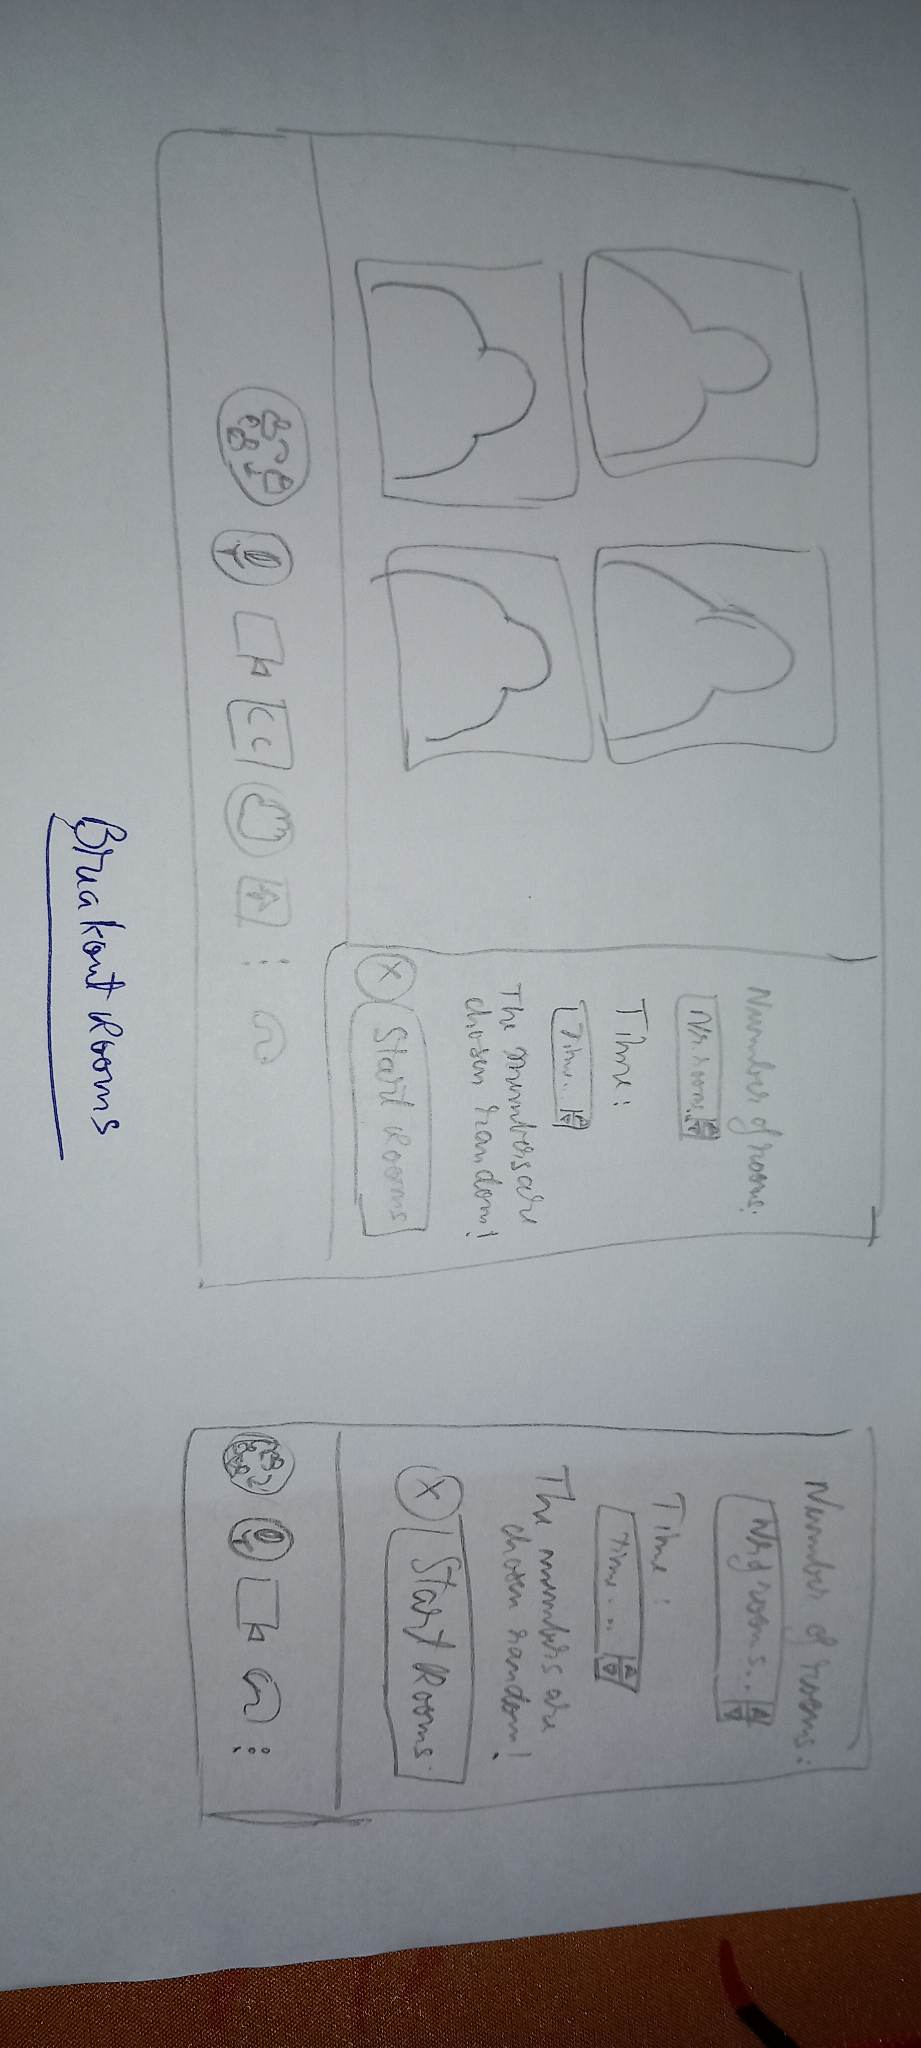 Number of rooms:
Nr. rooms..
Time:
Time...
The members are
chosen random!
X
Start Rooms
CC
Number of rooms:
Nr of rooms...
Time:
Time...
The members are
chosen random!
X
Start Rooms
Breakout Rooms